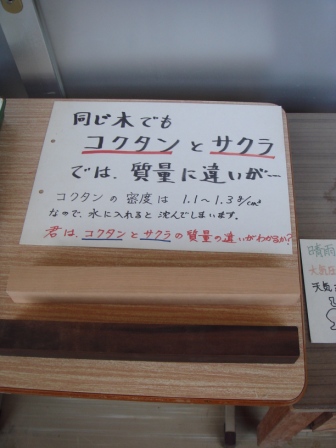 同じ木でも
コクタンとサクラ
では、質量に違いが…
コクタンの密度は 1.1〜1.3g/cm³
なので、水に入れると沈んでしまいます。
君は、コクタンとサクラの質量の違いがわかるか?
晴雨
天気